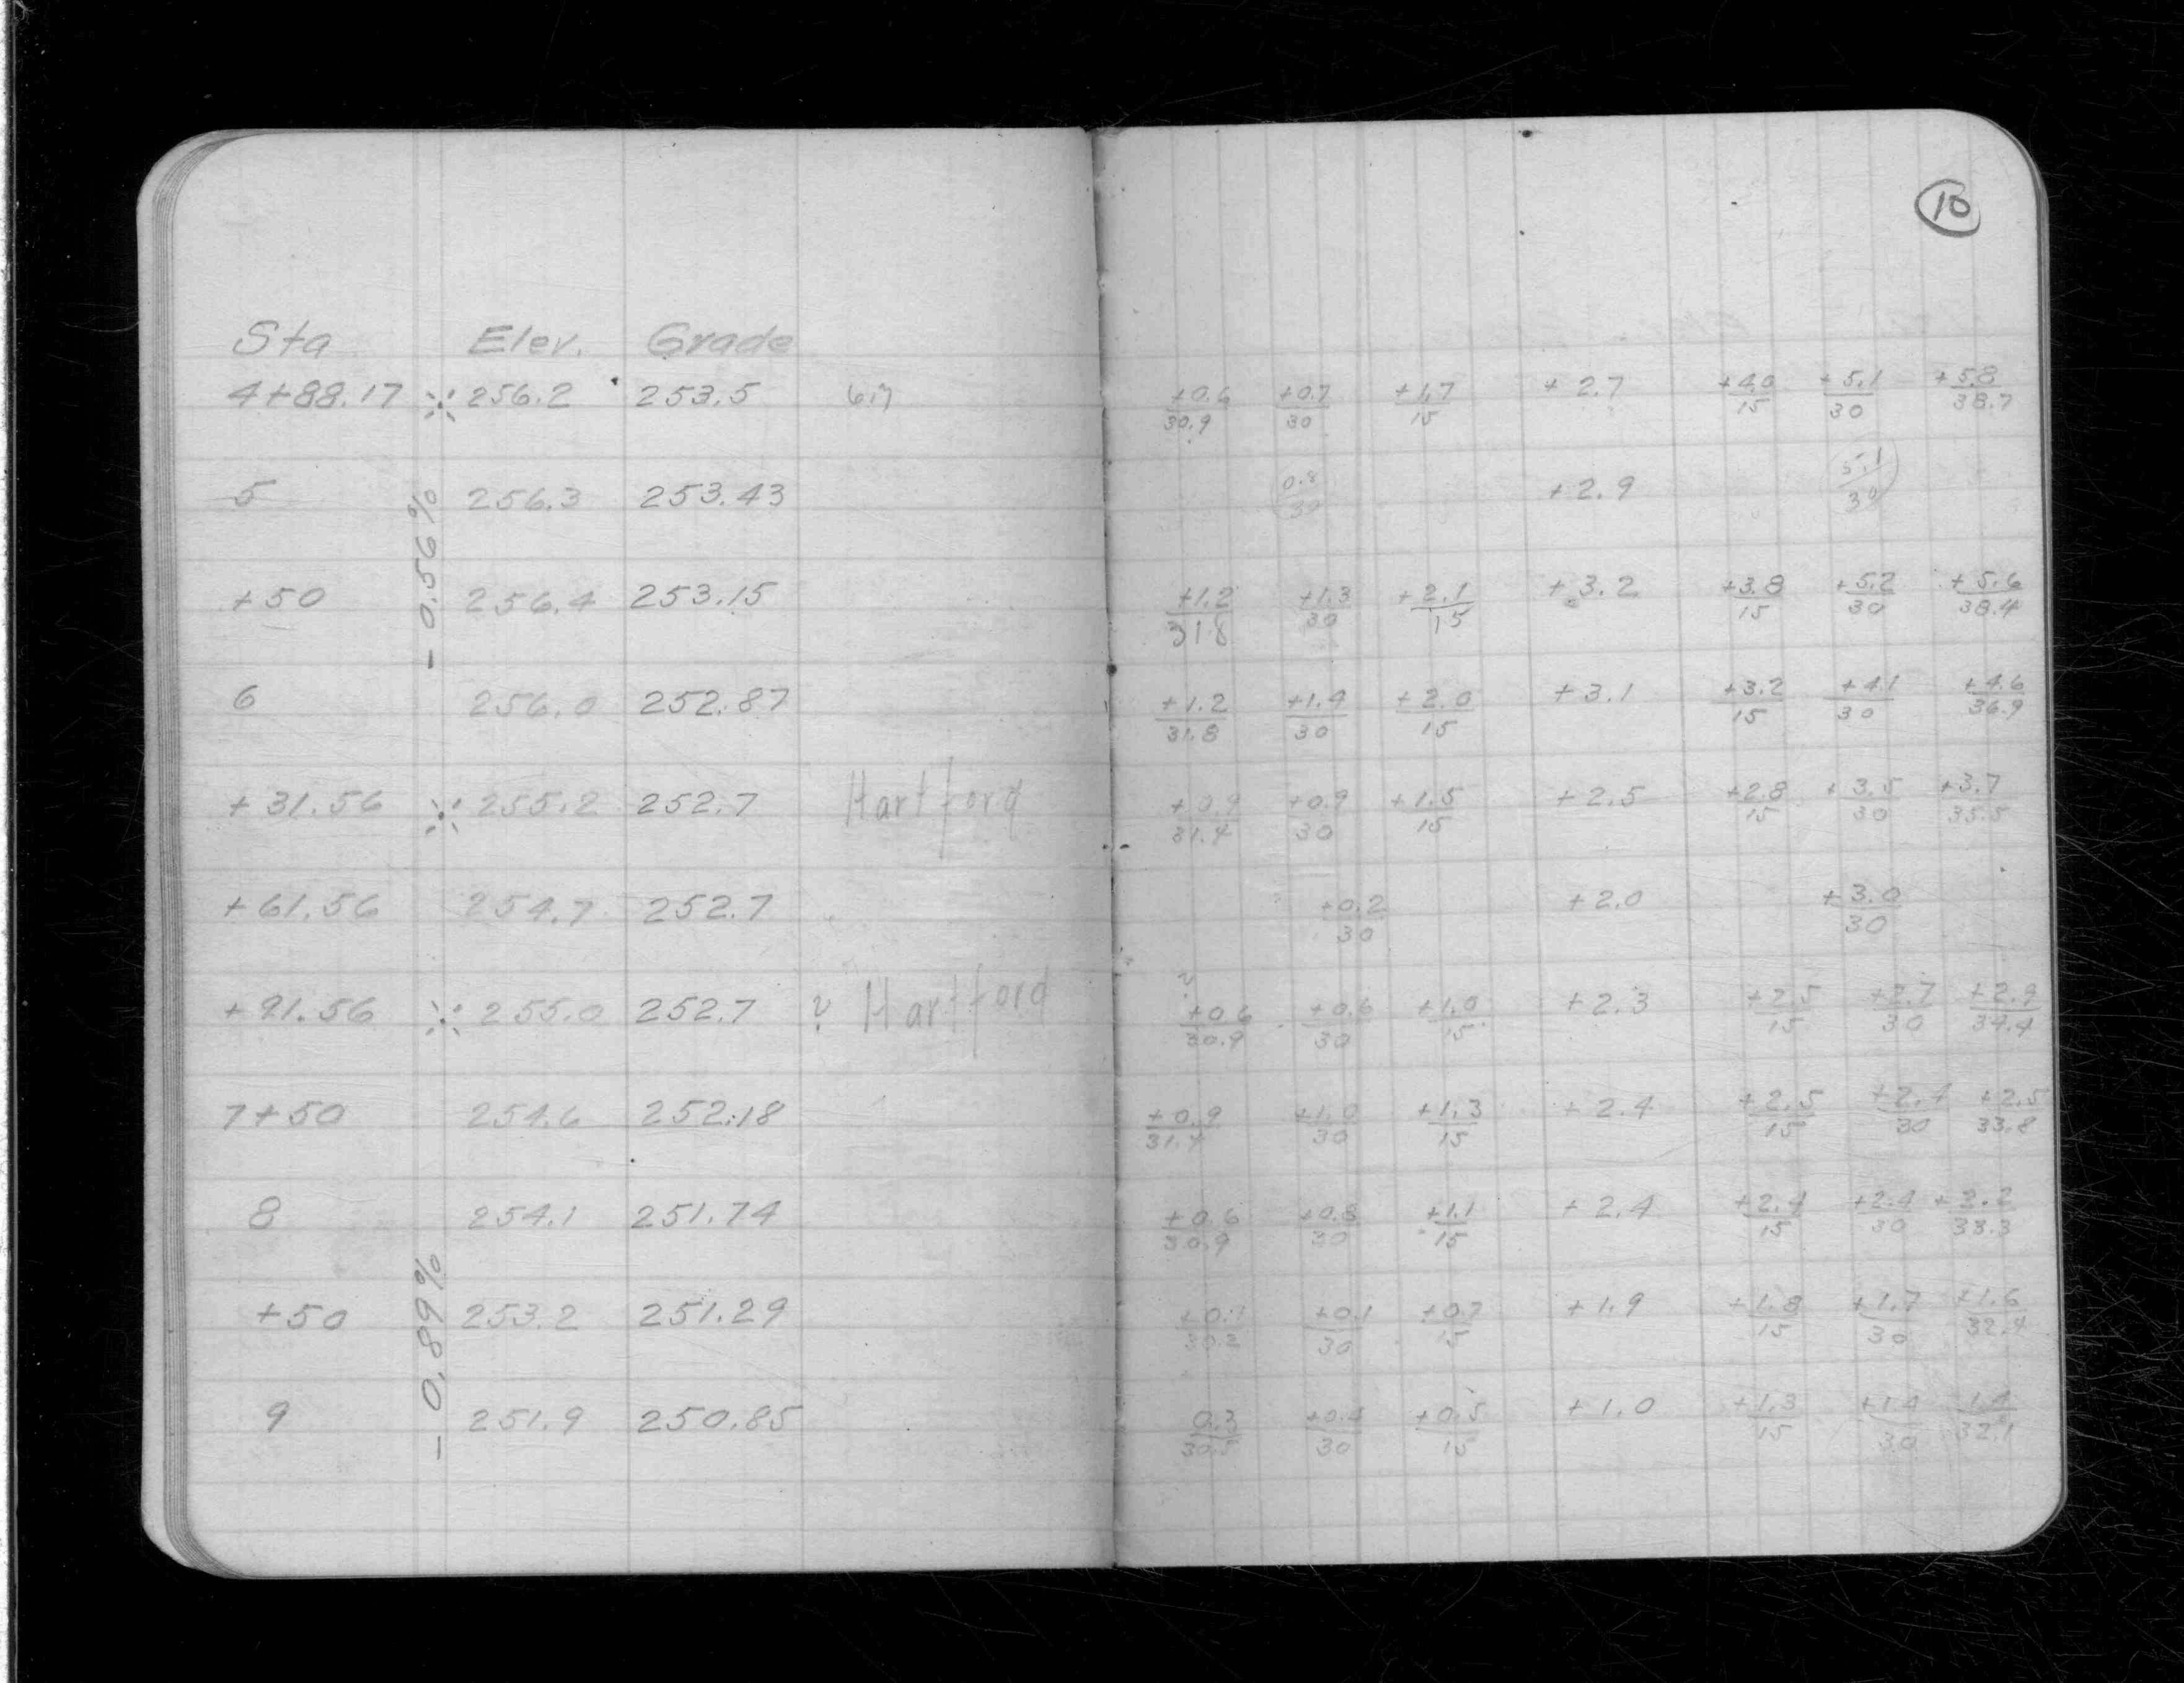 10
Sta Elev. Grade
4+88.17 256.2 253.5 +0.6/30.9 +0.7/30 +1.7/15 +2.7 +4.0/15 +5.1/30 +5.8/38.7
5 256.3 253.43 0.8/30 +2.9 5.1/30
- 0.56%
+50 256.4 253.15 +1.2/31.8 +1.3/30 +2.1/15 +3.2 +3.8/15 +5.2/30 +5.6/38.4
6 256.0 252.87 +1.2/31.8 +1.4/30 +2.0/15 +3.1 +3.2/15 +4.1/30 +4.6/36.9
+31.56 255.2 252.7 Hartford +0.9/31.4 +0.9/30 +1.5/15 +2.5 +2.8/15 +3.5/30 +3.7/35.5
+61.56 254.7 252.7 +0.2/30 +2.0 +3.0/30
+91.56 255.0 252.7 ? Hartford ? +0.6/30.9 +0.6/30 +1.0/15 +2.3 +2.5/15 +2.7/30 +2.9/34.4
7+50 254.6 252.18 +0.9/31.4 +1.0/30 +1.3/15 +2.4 +2.5/15 +2.4/30 +2.5/33.8
8 254.1 251.74 +0.6/30.9 +0.8/30 +1.1/15 +2.4 +2.4/15 +2.4/30 +2.2/33.3
- 0.89%
+50 253.2 251.29 +0.1/30.2 +0.1/30 +0.7/15 +1.9 +1.8/15 +1.7/30 +1.6/32.4
9 251.9 250.85 0.3/30.5 +0.4/30 +0.5/15 +1.0 +1.3/15 +1.4/30 1.4/32.1